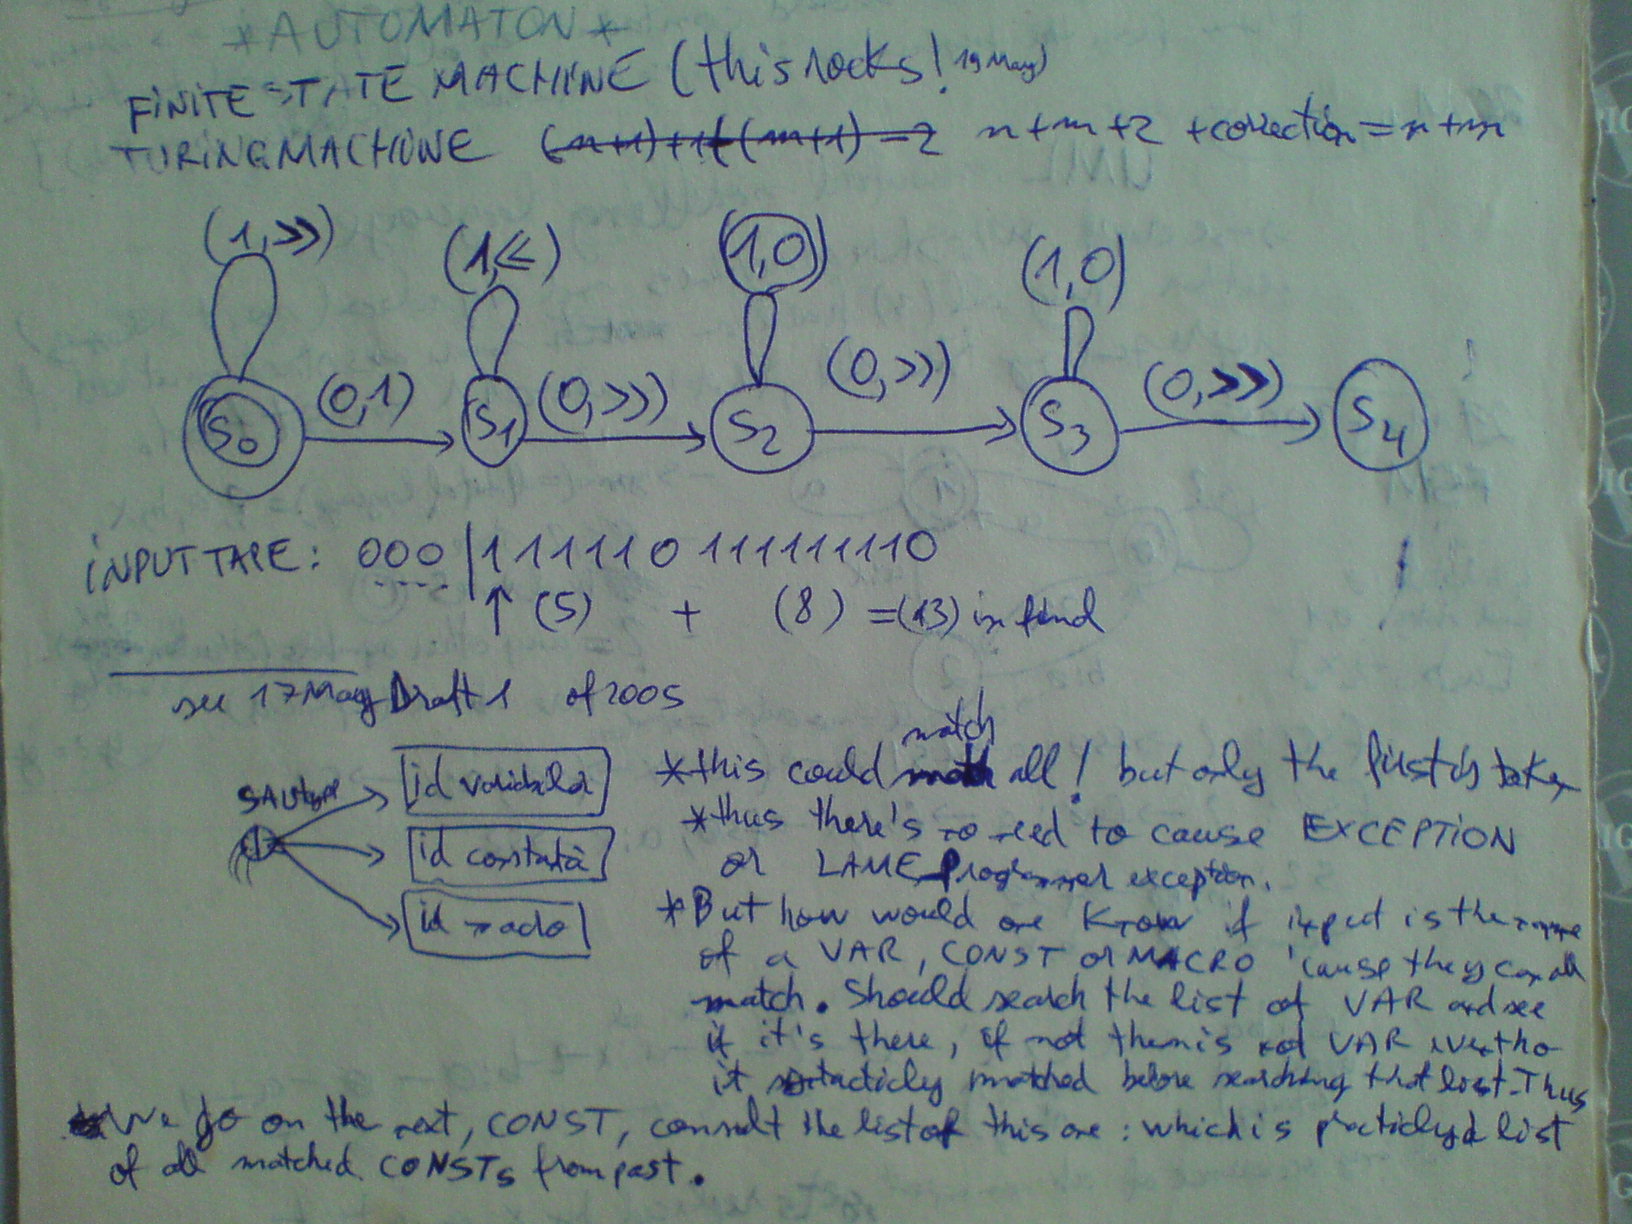 *AUTOMATON*
FINITE STATE MACHINE (this rocks! 19 May)
TURING MACHINE (n+1)+1+(m+1)=2 n+m+2 +correction=n+m
(1,>>) (1,<<) (1,0) (1,0)
(0,1) (0,>>) (0,>>) (0,>>)
S0 S1 S2 S3 S4
INPUT TAPE: 000|1111110 1111111110
↑ (5) + (8) =(13) in final
see 17 May Draft 1 of 2005
id variabila
id constantă
id macro
*this could match all! but only the first is taken
*thus there's no need to cause EXCEPTION
or LAME Programmer exception.
*But how would one know if input is the name
of a VAR, CONST or MACRO 'cause they can all
match. Should search the list of VAR and see
if it's there, if not then is not VAR eventho
it syntacticly matched before searching that list. Thus
we go on the next, CONST, consult the list of this one: which is practicly a list
of all matched CONSTs from past.